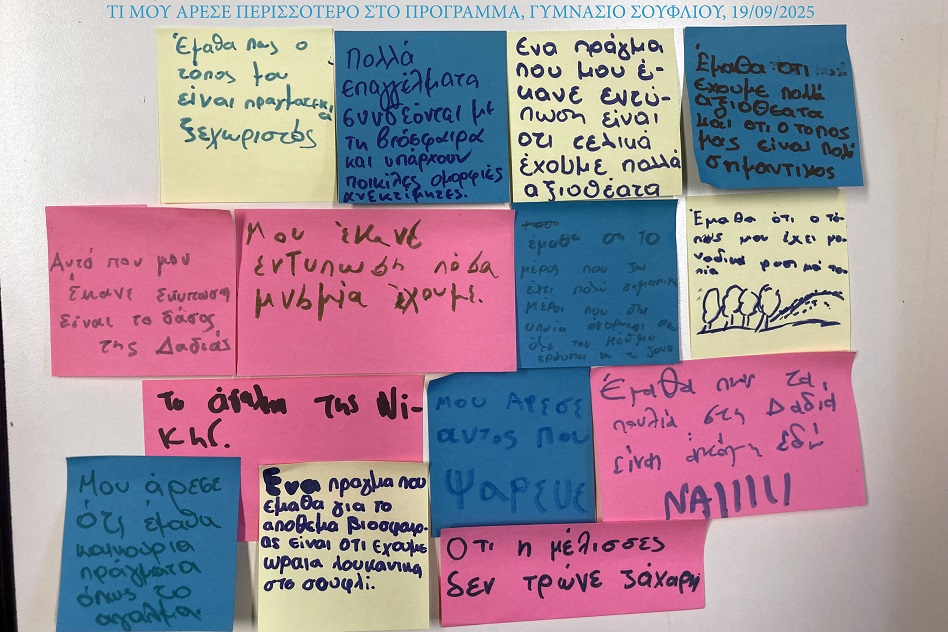 ΤΙ ΜΟΥ ΑΡΕΣΕ ΠΕΡΙΣΣΟΤΕΡΟ ΣΤΟ ΠΡΟΓΡΑΜΜΑ, ΓΥΜΝΑΣΙΟ ΣΟΥΦΛΙΟΥ, 19/09/2025
Έμαθα πως ο
τόπος μου
είναι πραγματικά
ξεχωριστός
Πολλά
επαγγέλματα
συνδέονται με
τη βιόσφαιρα
και υπάρχουν
ποικίλες ομορφιές
ανεκτίμητες.
Ένα πράγμα
που μου έ-
κανε εντύ-
πωση είναι
οτι τελικά
έχουμε πολλά
αξιοθέατα
Έμαθα ότι
έχουμε πολλά
αξιοθέατα
και οτι ο τοπος
μας είναι πολύ
σημαντικος
Αυτό που μου
έκανε εντύπωση
είναι το δάσος
της Δαδιάς
Μου έκανε
εντυπωση πόσα
μνημία έχουμε.
έμαθα οτι το
μέρος που ζω
έχει πολύ σημαντικά
μέρη που στα
οποία
όλο τον κόσμο
Έμαθα ότι ο τό-
πος μου έχει μο-
ναδική
Το άγαλμα της Νί-
κης.
Μου Αρεσε
αυτος που
ψαρευε
Έμαθα πως τα
πουλιά στη Δαδιά
είναι ακόμη εδώ
ΝΑΙΙΙΙΙ
Μου άρεσε
ότι έμαθα
καινούρια
πράγματα
όπως το
αγαλμα.
Ένα πραγμα που
έμαθα για το
αποθεμα βιοσφαιρ-
ας είναι οτι έχουμε
ωραια λουκανικα
στο σουφλί.
Οτι η μέλισσες
δεν τρώνε ζάχαρη